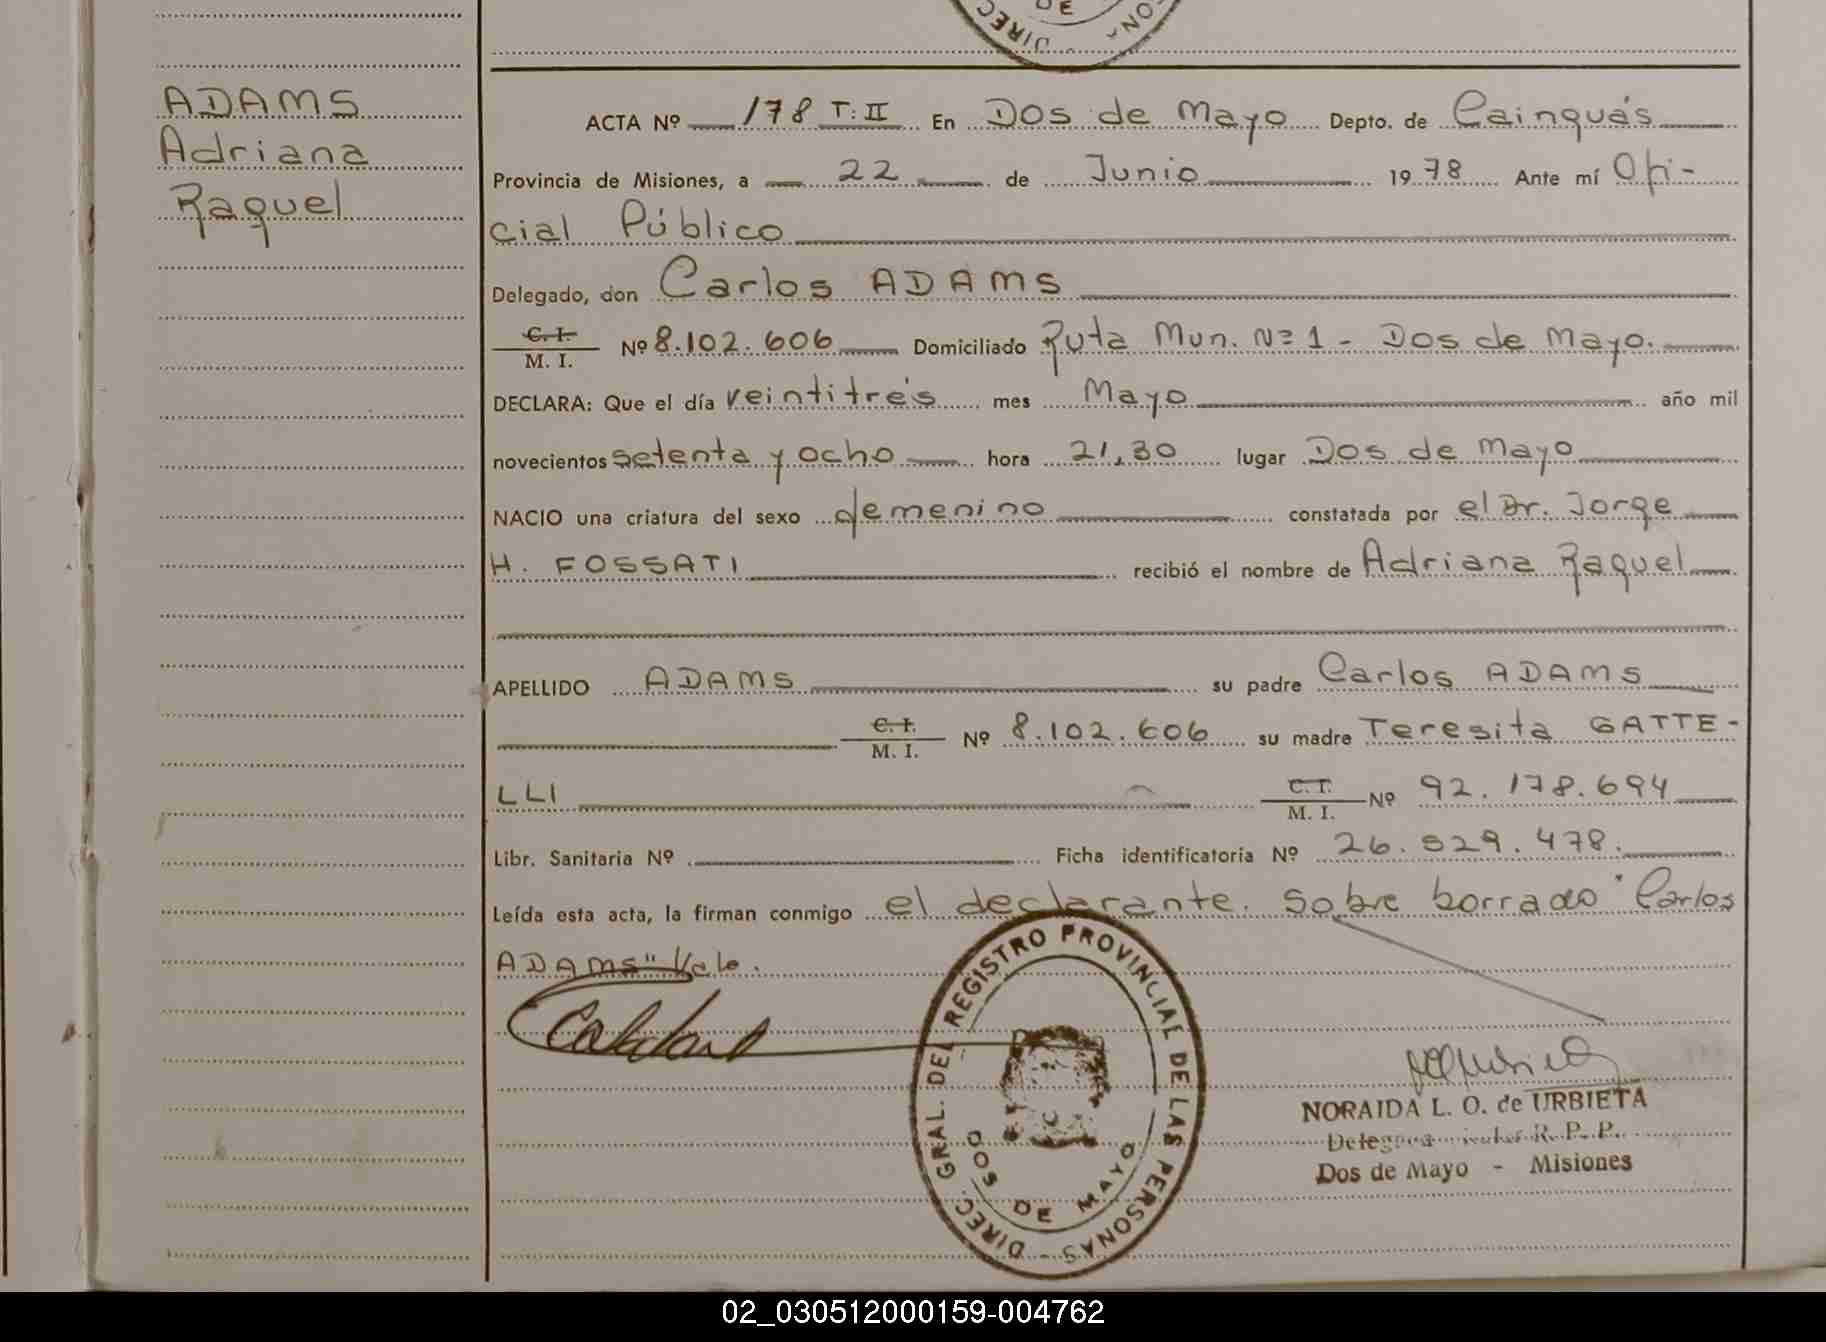 DIREC
DE
ADAMS
Adriana
Raquel
ACTA Nº 178 T: II En Dos de Mayo Depto. de Cainguás
Provincia de Misiones, a 22 de Junio 1978 Ante mí Ofi-
cial Público
Delegado, don Carlos ADAMS
C. I.
M. I. Nº 8.102.606 Domiciliado Ruta Mun. Nº 1 - Dos de Mayo.
DECLARA: Que el día veintitrés mes Mayo año mil
novecientos setenta y ocho hora 21,30 lugar Dos de Mayo
NACIO una criatura del sexo femenino constatada por el Dr. Jorge
H. FOSSATI recibió el nombre de Adriana Raquel
APELLIDO ADAMS su padre Carlos ADAMS
C. I.
M. I. Nº 8.102.606 su madre Teresita GATTE-
LLI C. I.
M. I. Nº 92.178.694
Libr. Sanitaria Nº Ficha identificatoria Nº 26.529.478.
Leída esta acta, la firman conmigo el declarante. Sobre borrado "Carlos
ADAMS" Vale.
DIREC. GRAL. DEL REGISTRO PROVINCIAL DE LAS PERSONAS
DOS DE MAYO
NORAIDA L. O. de URBIETA
R. P. P.
Dos de Mayo - Misiones
02_030512000159-004762